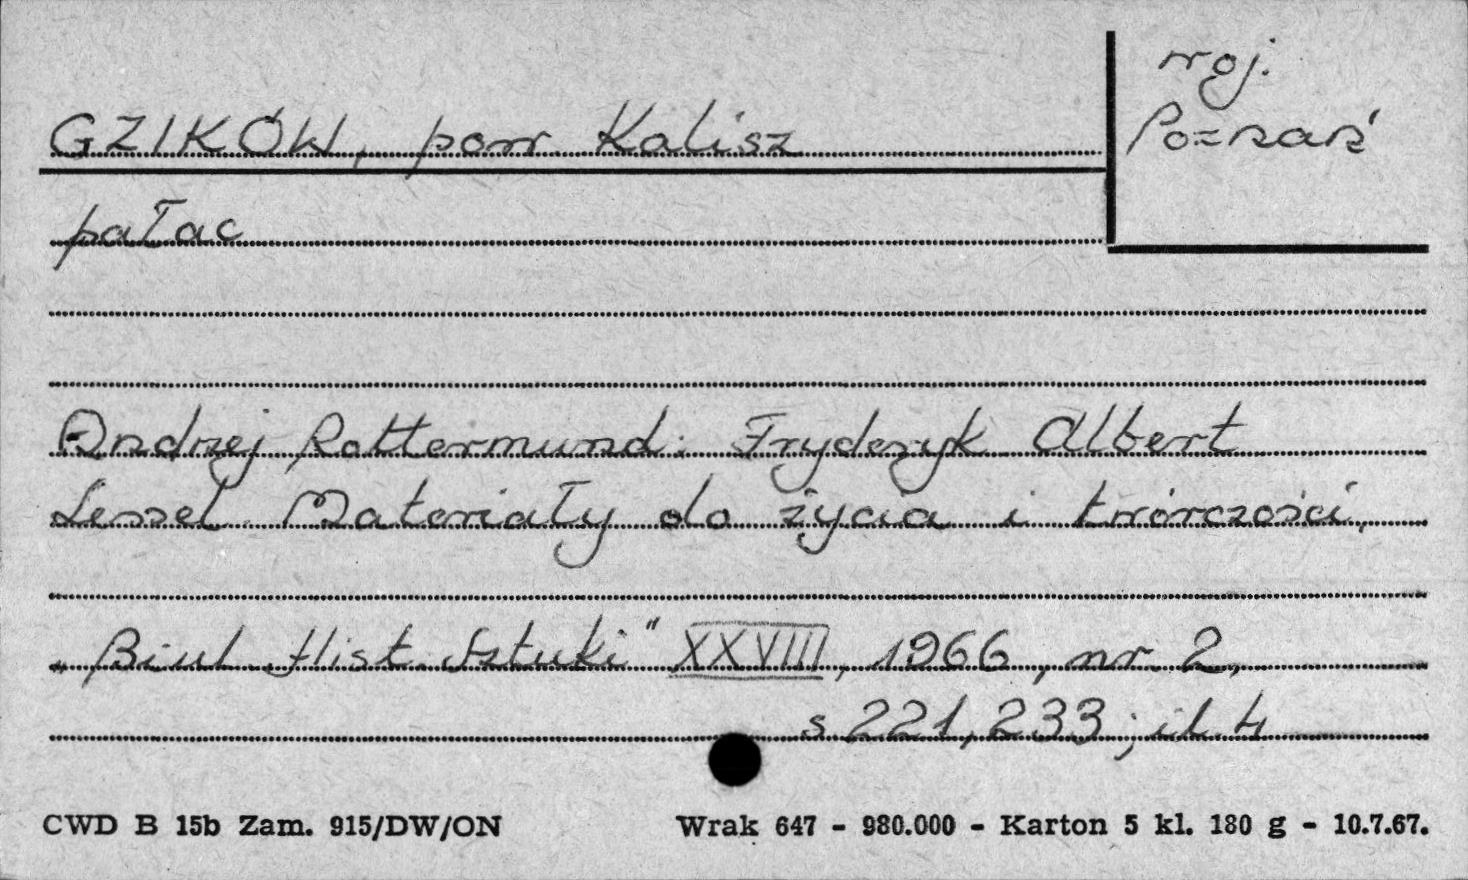 woj.
Poznań
GZIKÓW, pow Kalisz
pałac
Andrzej Rottermund: Fryderyk Albert
Lessel. Materiały do życia i twórczości,
„Biul. Hist. Sztuki" XXVIII, 1966, nr 2,
s 221, 233; il. 4
CWD B 15b Zam. 915/DW/ON Wrak 647 - 980.000 - Karton 5 kl. 180 g - 10.7.67.